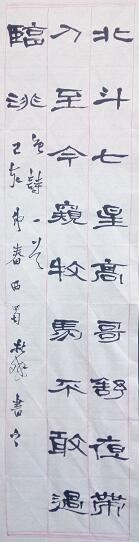 北斗七星高哥舒夜带
刀至今窥牧马不敢过
临洮
唐诗一首
己亥 春西蜀 书